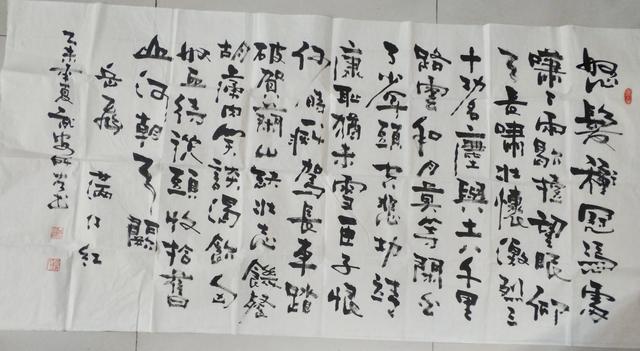 怒髮衝冠憑處
瀟々雨歇擡望眼仰
天長嘯壯懷激烈三
十功名塵與土八千里
路雲和月莫等閑白
了少年頭空悲切靖
康恥猶未雪臣子恨
何時滅駕長車踏
破賀蘭山缺壯志饑餐
胡虜肉笑談渴飲匈
奴血待從頭收拾舊
山河朝天闕
岳飛 滿江紅
乙未孟夏